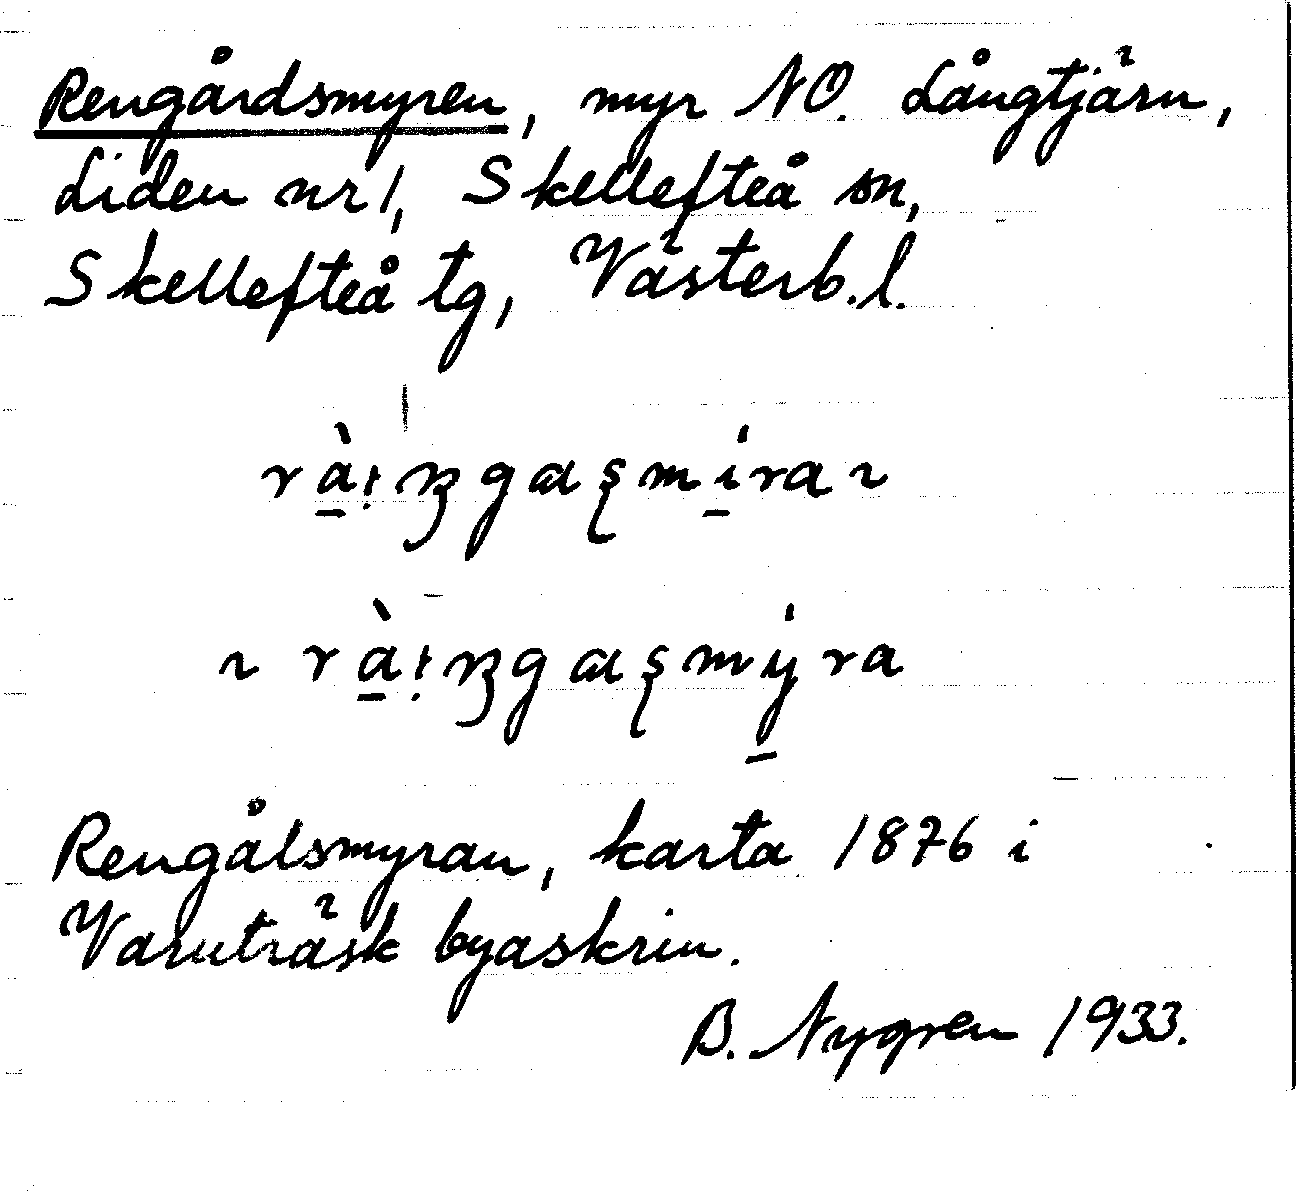 Rengårdsmyren, myr NO. Långtjärn,
Liden nr 1, Skellefteå sn,
Skellefteå tg, Västerb.l.
Rengålsmyran, karta 1876 i
Varuträsk byaskrin.
B. Nygren 1933.